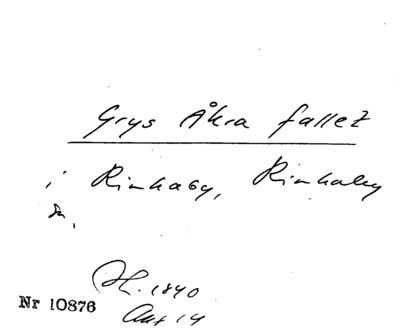 Grys Åkra fallet
i Rinkaby, Rinkaby
sn.
H. 1840
Akt 14
Nr 10876